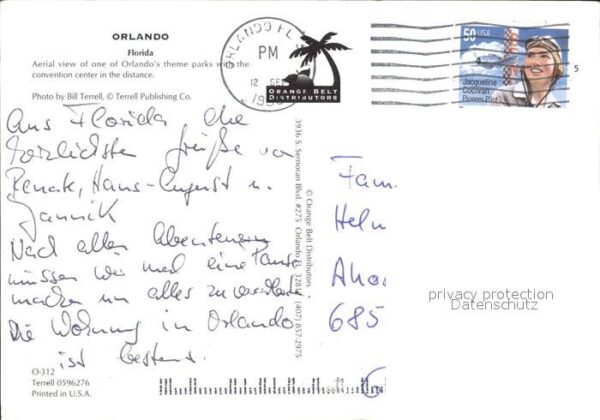 ORLANDO
Florida
Aerial view of one of Orlando's theme parks with the
convention center in the distance.
Photo by Bill Terrell, © Terrell Publishing Co.
ORLANDO FL
PM
12 SEP
ORANGE BELT
DISTRIBUTORS
50 USA
Jacqueline
Cochran
Pioneer Pilot
5
Aus Florida die
herzlichsten Grüße von
Renate, Hans-August u.
Jannik
Nach allen Abenteuern
müssen wir mal eine Pause
machen um alles zu verarbeiten.
Die Wohnung in Orlando
ist bestens.
© Orange Belt Distributors
3936 S. Semoran Blvd. #275 Orlando FL (407) 857-2975
Fam.
Helm
685
privacy protection
Datenschutz
O-312
Terrell 0596276
Printed in U.S.A.